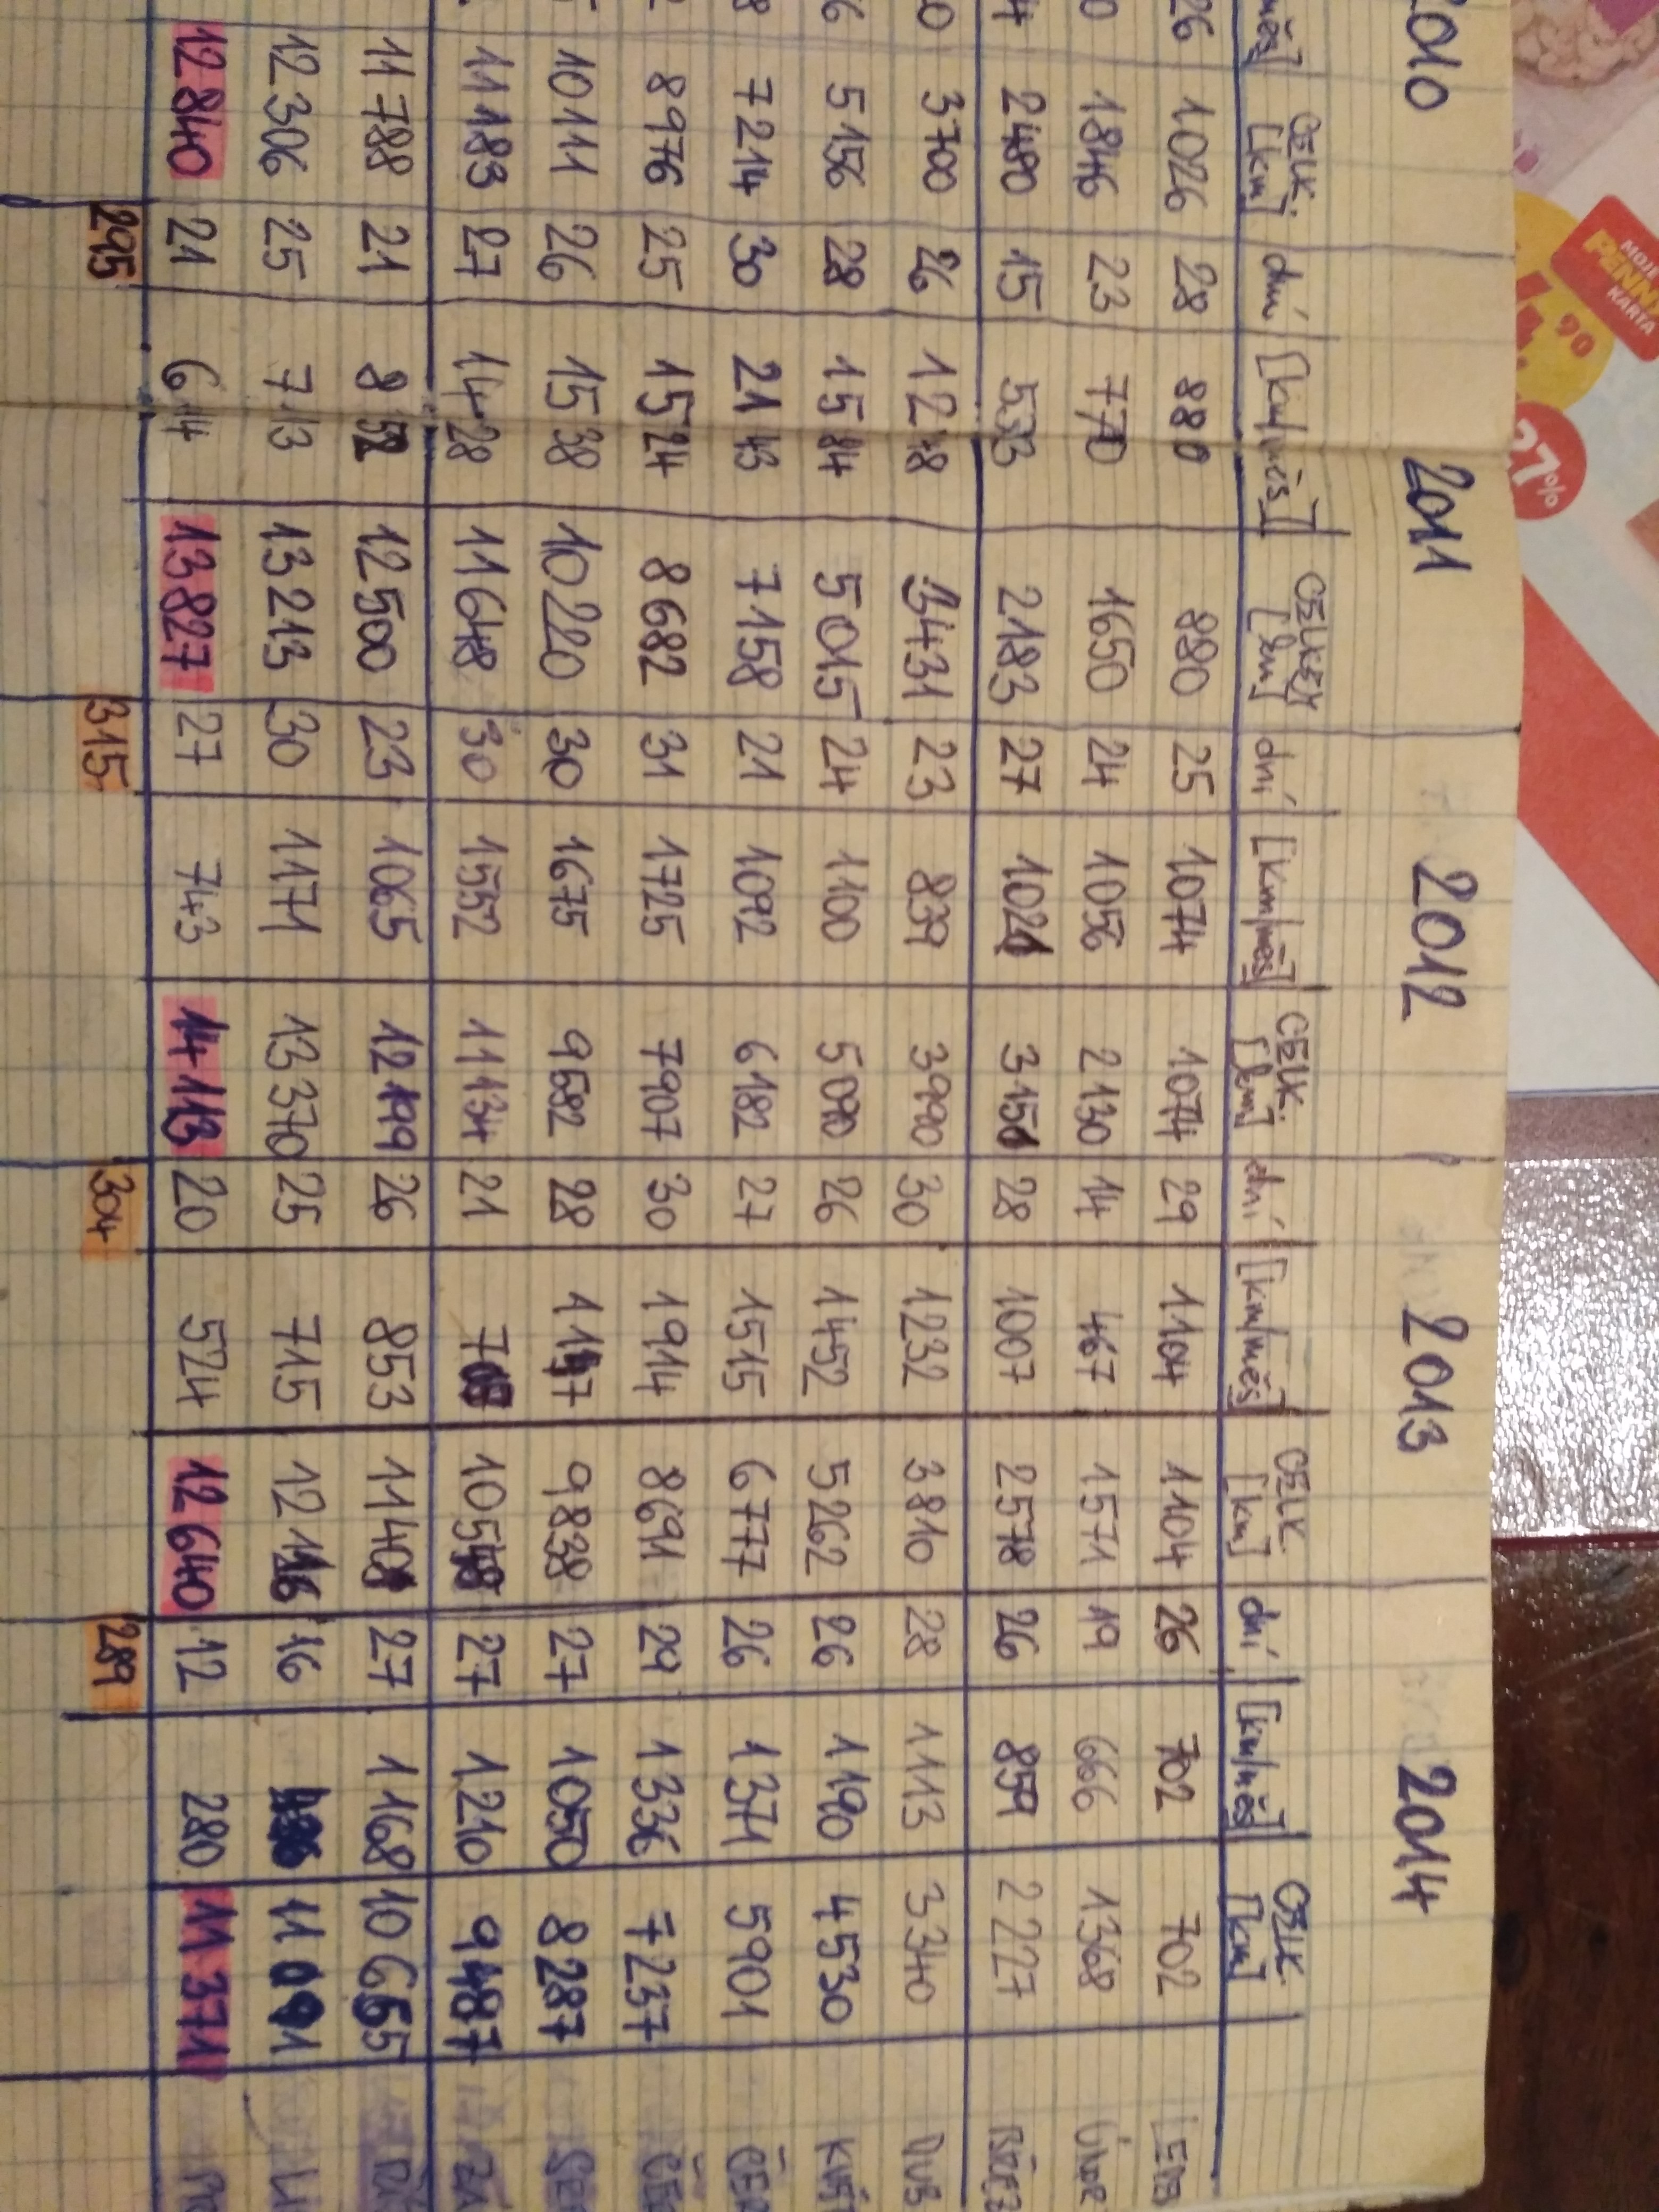 MOJE
PENNY
KARTA
90
27%
2010 2011 2012 2013 2014
měs] CELK. [km] dní [km/měs] CELKEM [km] dní [km/měs] CELK. [km] dní [km/měs] CELK. [km] dní [km/měs] CELK. [km]
26 1026 28 880 880 25 1074 1074 29 1104 1104 26 702 702
0 1846 23 770 1650 24 1056 2130 14 467 1571 19 666 1368 ÚNOR
4 2480 15 533 2183 27 1021 3151 28 1007 2578 26 859 2227 BŘEZ
0 3700 26 1248 3431 23 839 3990 30 1232 3810 28 1113 3340 DUB
6 5156 28 1584 5015 24 1100 5090 26 1452 5262 26 1190 4530 KVĚ
8 7214 30 2143 7158 21 1092 6182 27 1515 6777 26 1371 5901 ČER
8976 25 1524 8682 31 1725 7907 30 1914 8691 29 1336 7237 ČE
10111 26 1538 10220 30 1675 9582 28 1147 9838 27 1050 8287
11183 27 1428 11648 30 1552 11134 21 10548 27 1210 9487
11788 21 852 12500 23 1065 12199 26 853 11401 27 1168 10655
12306 25 713 13213 30 1171 13370 25 715 12116 16 11091
12840 21 614 13827 27 743 14113 20 524 12640 12 280 11371
295 315 304 289